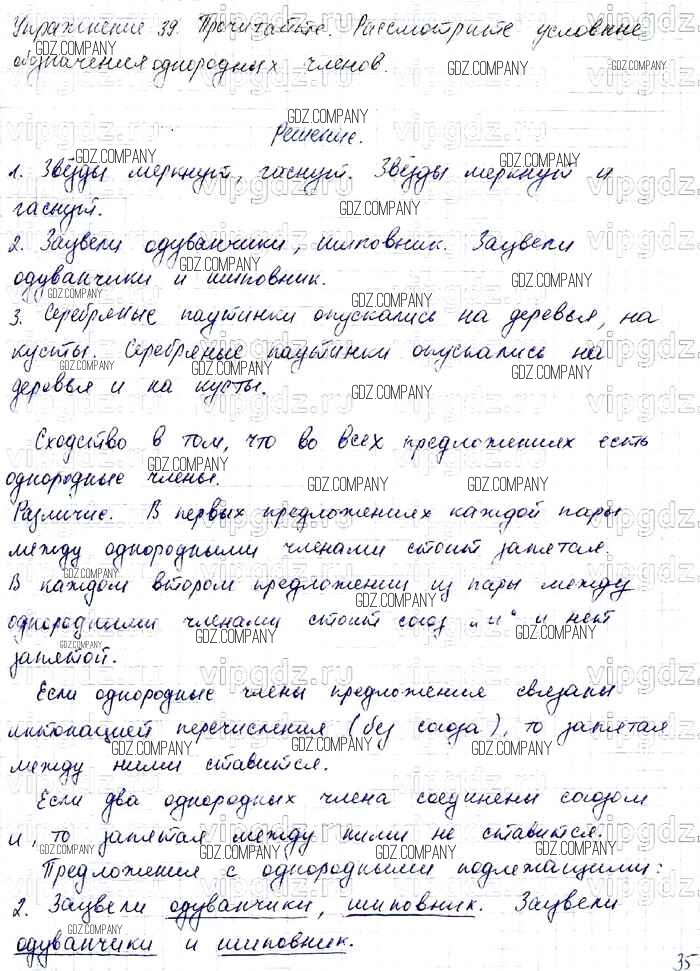 Упражнение 39. Прочитайте. Рассмотрите условные
обозначения однородных членов.
Решение.
1. Звёзды меркнут, гаснут. Звёзды меркнут и
гаснут.
2. Зацвели одуванчики, шиповник. Зацвели
одуванчики и шиповник.
3. Серебряные паутинки опускались на деревья, на
кусты. Серебряные паутинки опускались на
деревья и на кусты.
Сходство в том, что во всех предложениях есть
однородные члены.
Различие. В первых предложениях каждой пары
между однородными членами стоит запятая.
В каждом втором предложении из пары между
однородными членами стоит союз „и“ и нет
запятой.
Если однородные члены предложения связаны
интонацией перечисления (без союза), то запятая
между ними ставится.
Если два однородных члена соединены союзом
и, то запятая между ними не ставится.
Предложения с однородными подлежащими:
2. Зацвели одуванчики, шиповник. Зацвели
одуванчики и шиповник.
35